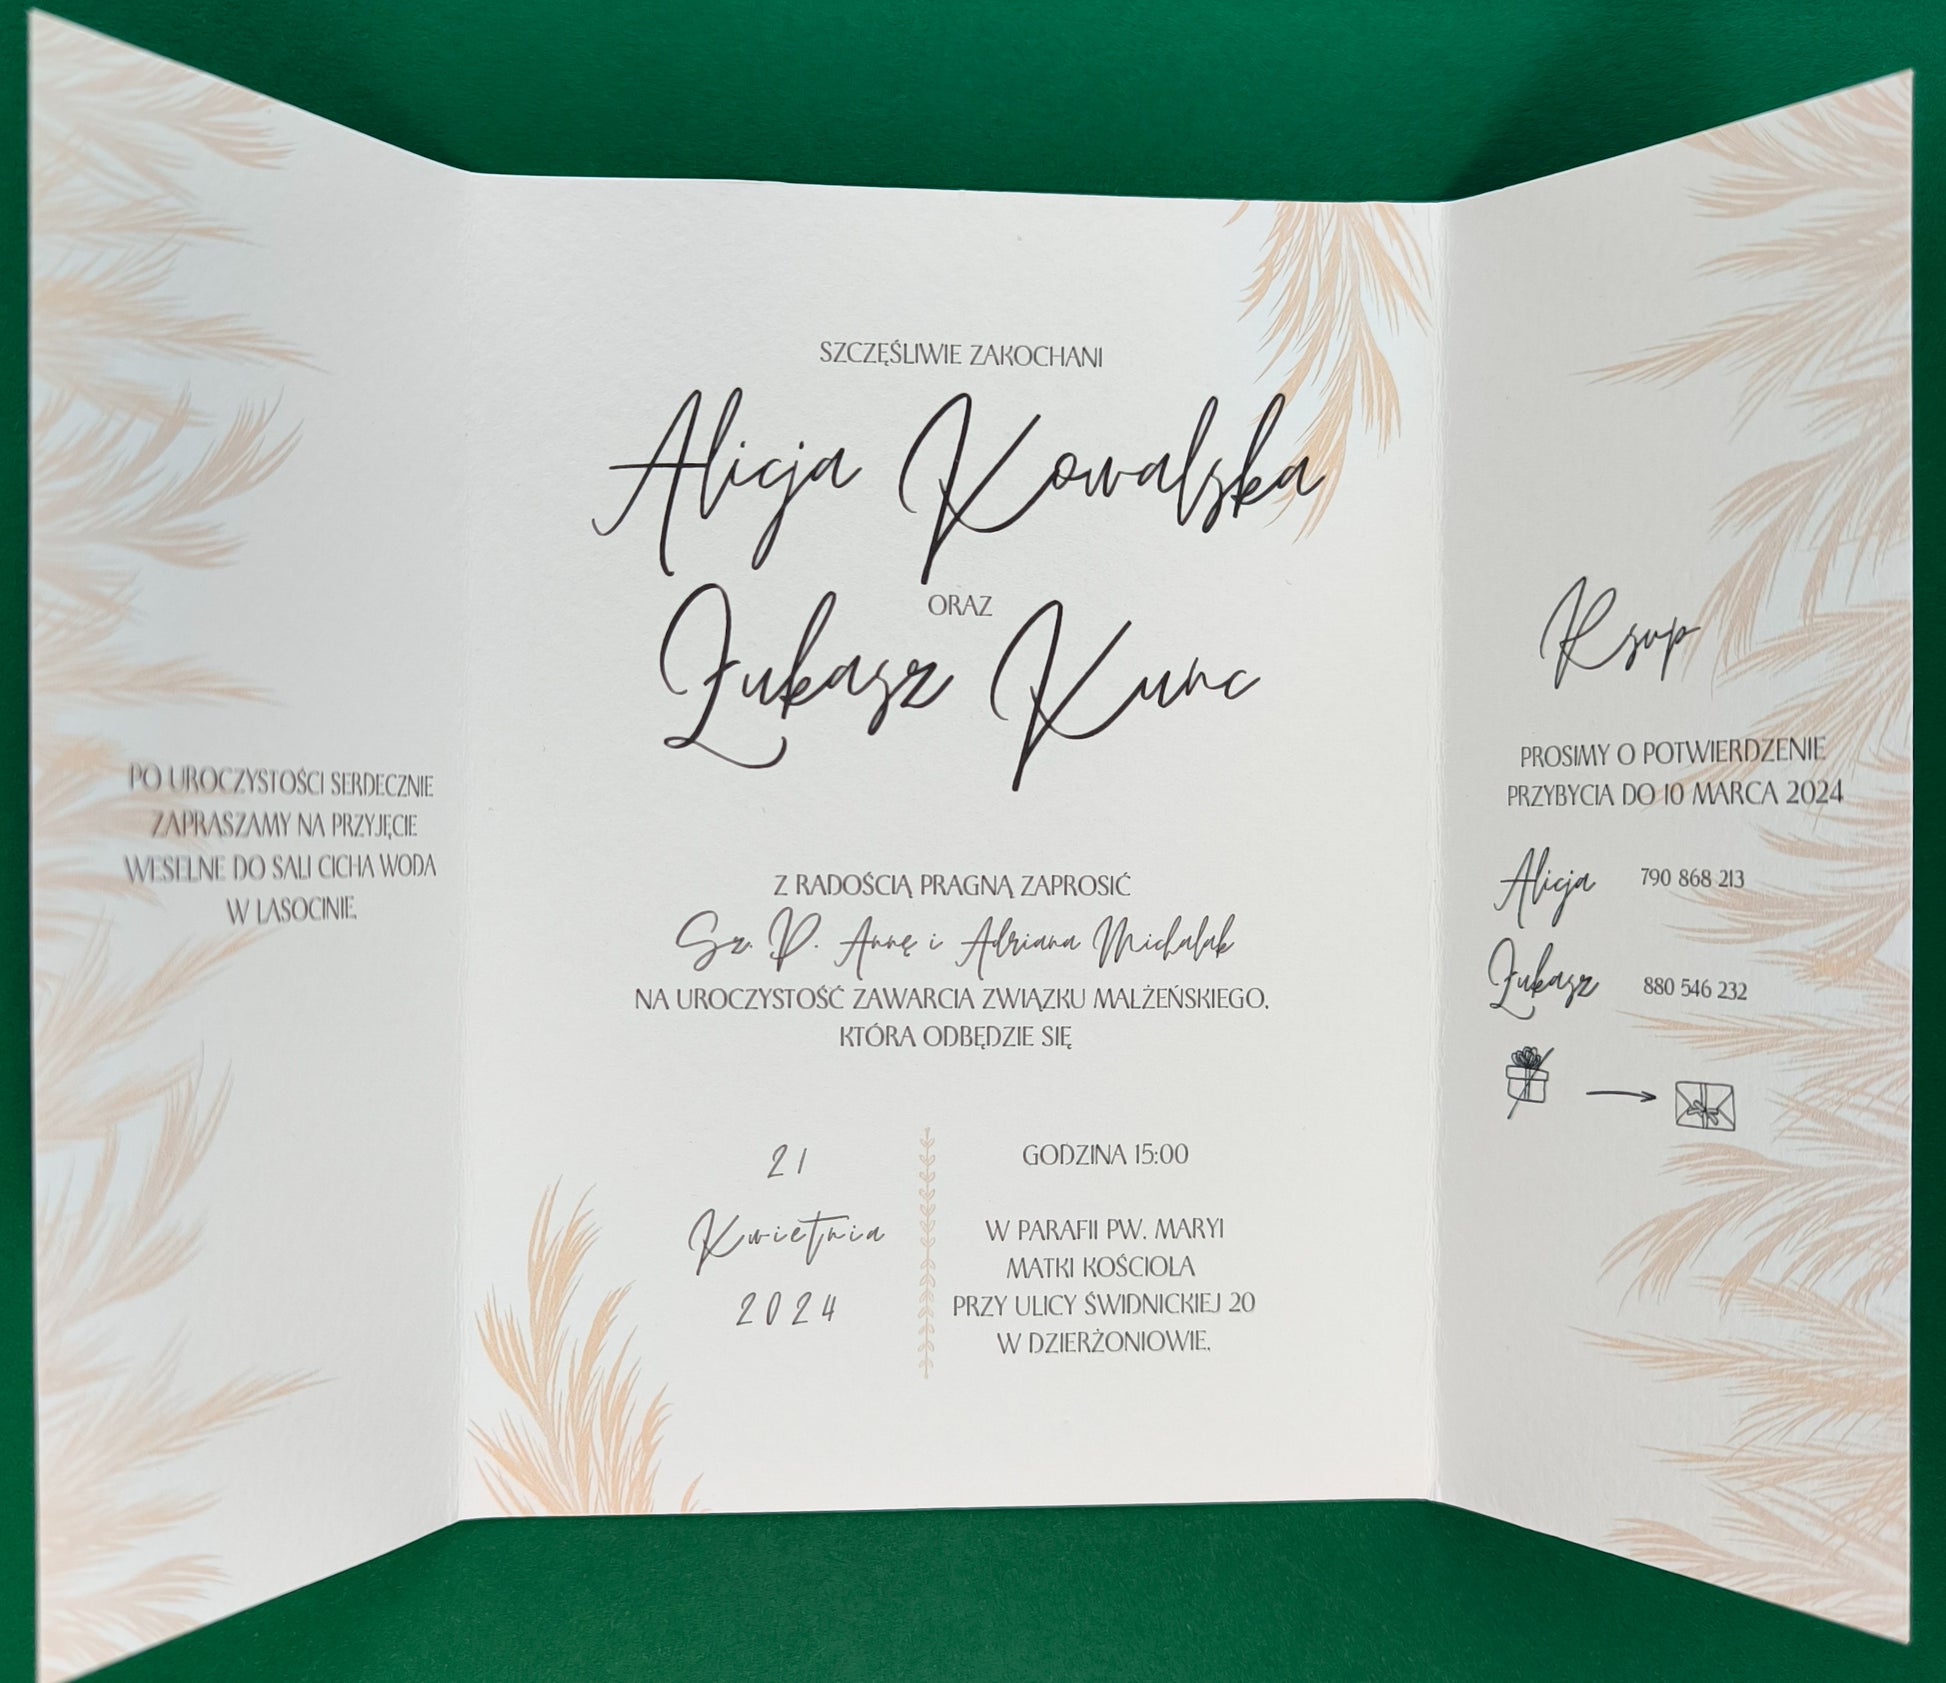 PO UROCZYSTOŚCI SERDECZNIE
ZAPRASZAMY NA PRZYJĘCIE
WESELNE DO SALI CICHA WODA
W LASOCINIE.
SZCZĘŚLIWIE ZAKOCHANI
Alicja Kowalska
ORAZ
Łukasz Kunc
Z RADOŚCIĄ PRAGNĄ ZAPROSIĆ
Sz. P. Annę i Adriana Michalak
NA UROCZYSTOŚĆ ZAWARCIA ZWIĄZKU MALŻEŃSKIEGO,
KTÓRA ODBĘDZIE SIĘ
21
Kwietnia
2024
GODZINA 15:00
W PARAFII PW. MARYI
MATKI KOŚCIOLA
PRZY ULICY ŚWIDNICKIEJ 20
W DZIERŻONIOWIE.
Rsvp
PROSIMY O POTWIERDZENIE
PRZYBYCIA DO 10 MARCA 2024
Alicja 790 868 213
Łukasz 880 546 232